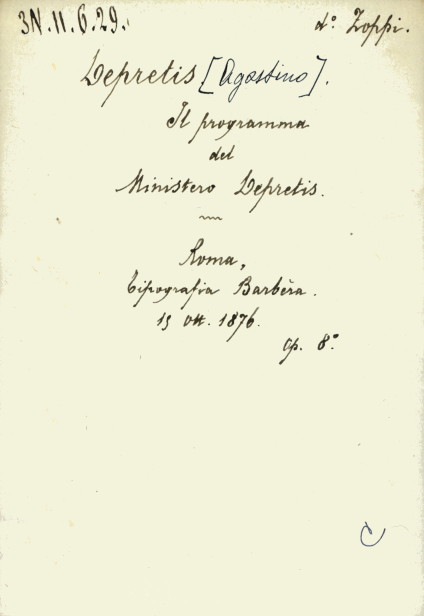 3N.11.6.29.
d° Zoppi.
Depretis [Agostino].
Il programma
del
Ministero Depretis.
Roma,
Tipografia Barbèra.
15 ott. 1876.
Op. 8°
C